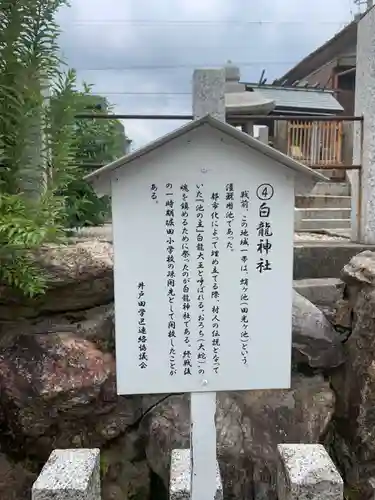 ④白龍神社
戦前、この地域一帯は、蛸池(田光ケ池)という
灌漑用池であった。
都市化で埋め立てる際、村人の伝説となって
いた『池の主』白龍大王と呼ばれる、おろち(大蛇)の
魂を鎮めるために祭ったのが白龍神社である。終戦後
の一時期堀田小学校の疎開先として開設したことが
ある。
井戸田学区連絡協議会